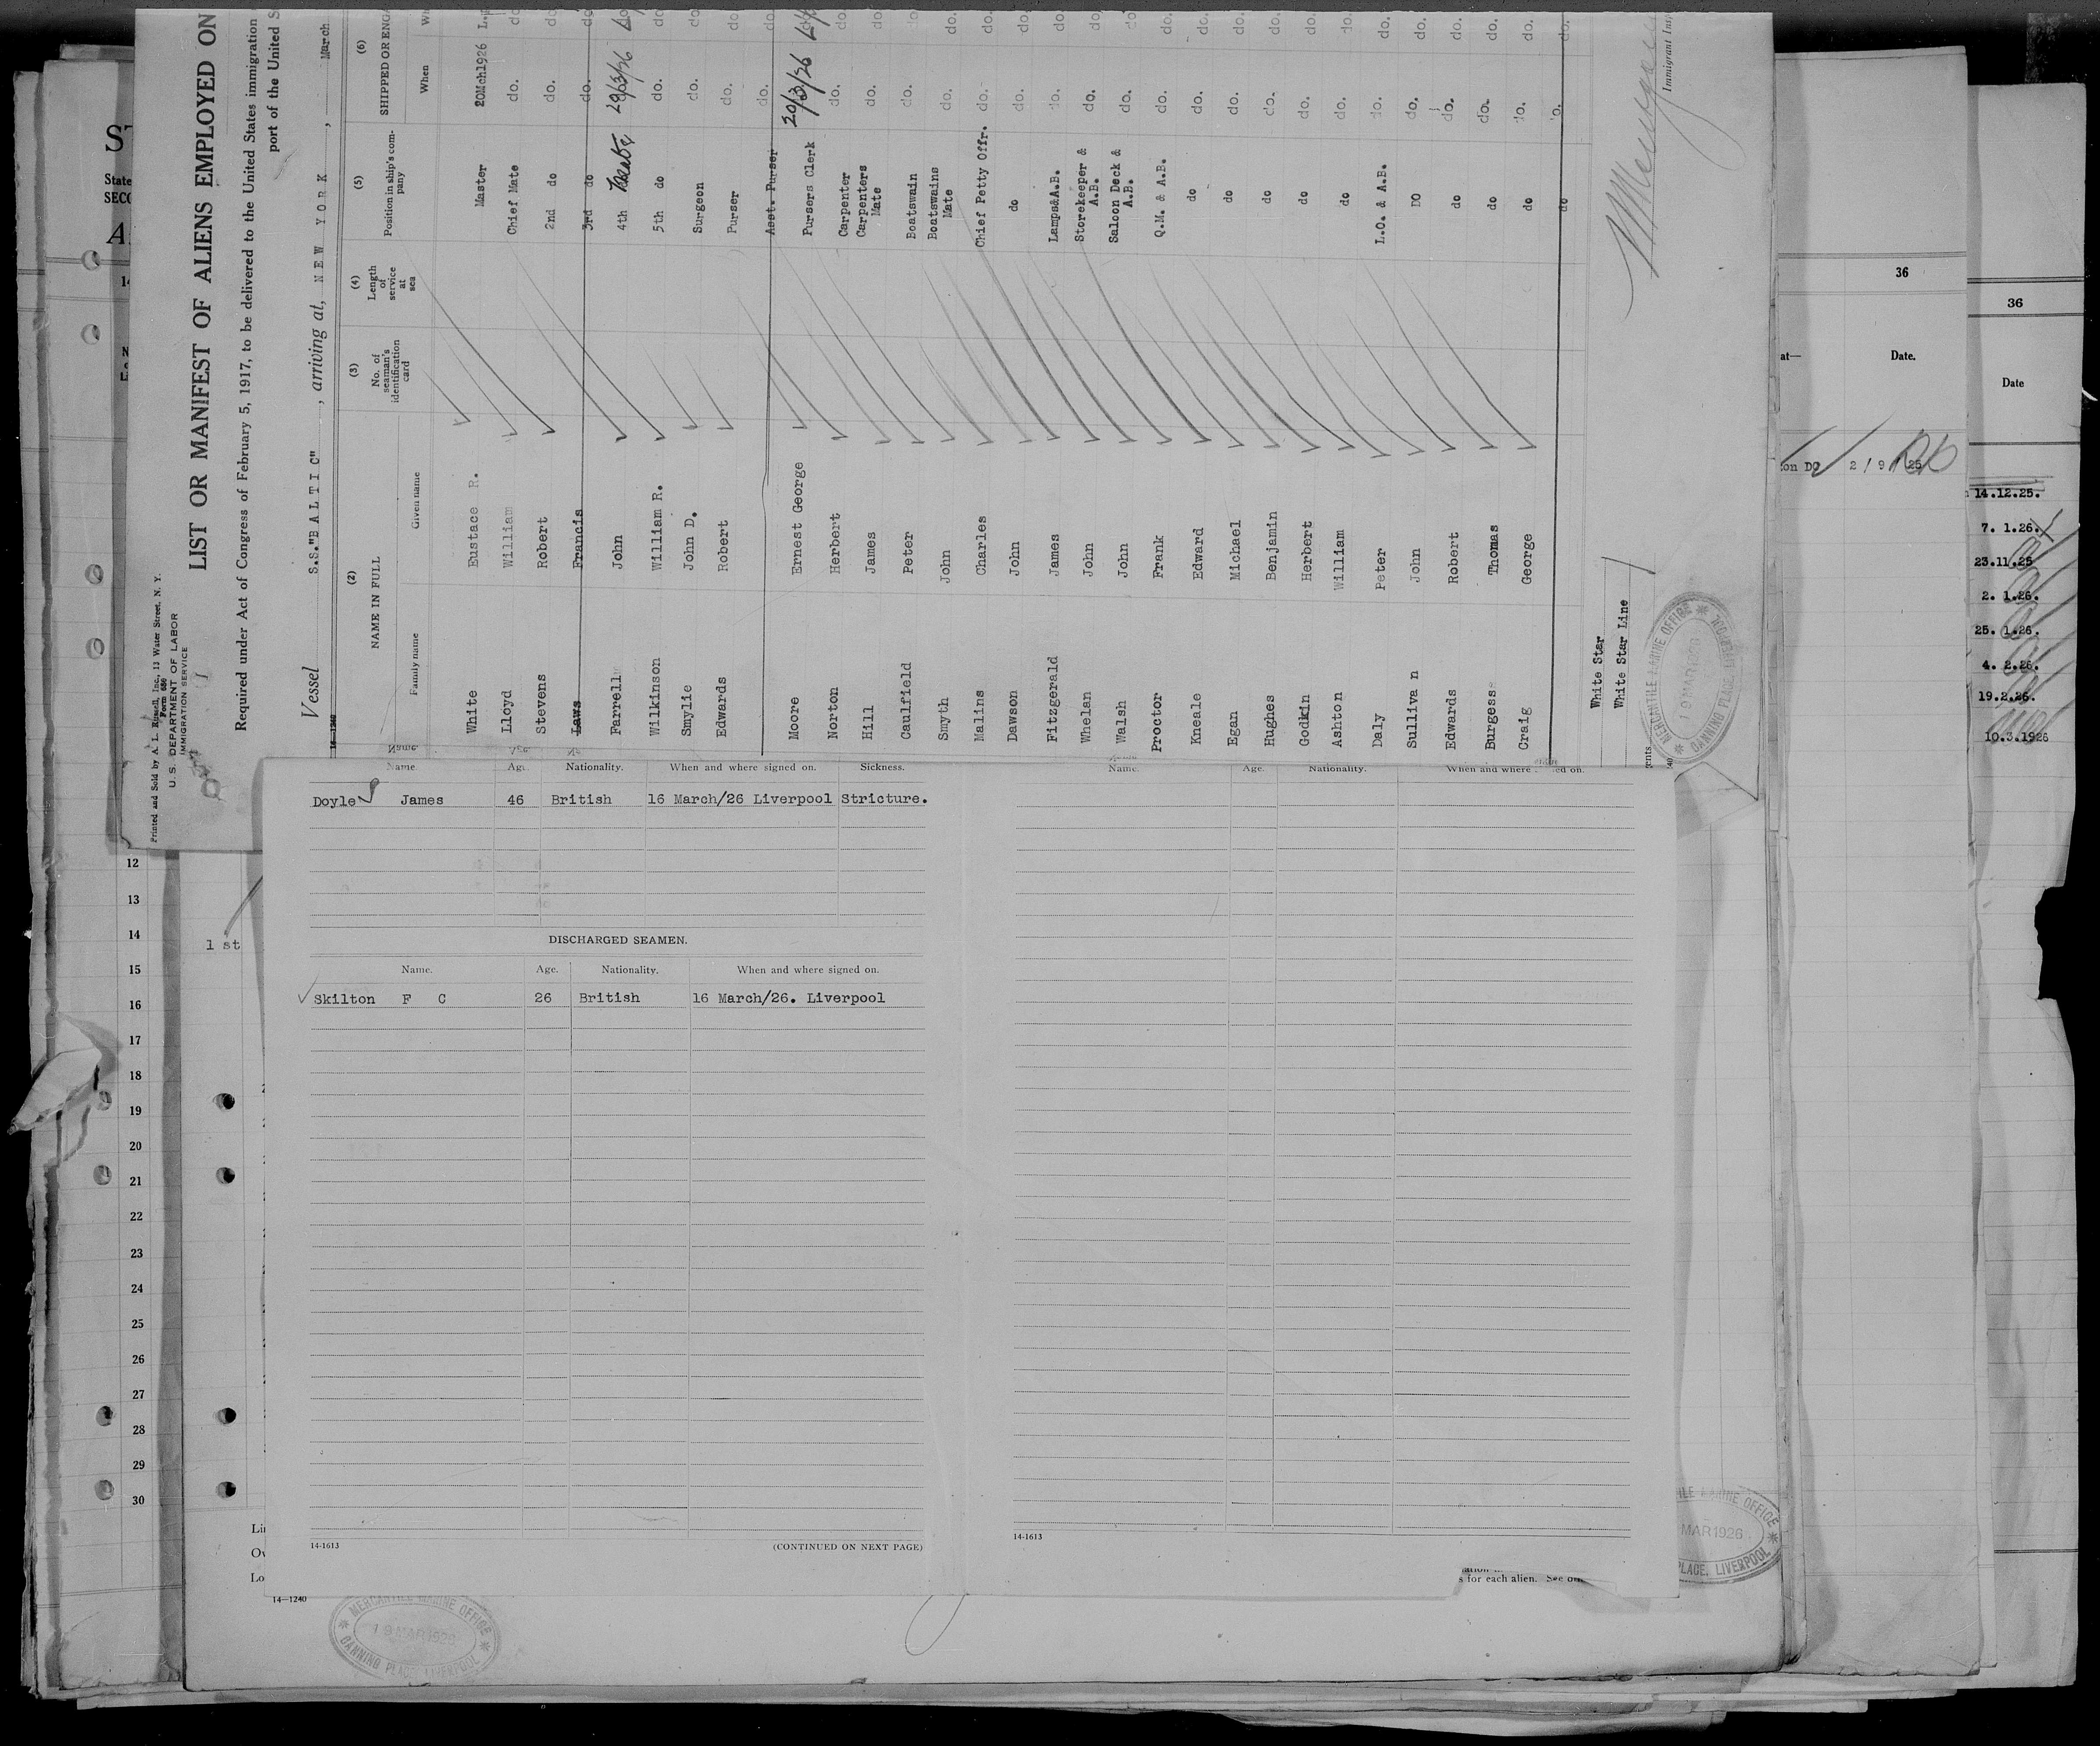 Printed and Sold by A. L. Russell, Inc., 13 Water Street, N. Y.
Form 680
U. S. DEPARTMENT OF LABOR
IMMIGRATION SERVICE
LIST OR MANIFEST OF ALIENS EMPLOYED ON
Required under Act of Congress of February 5, 1917, to be delivered to the United States immigration
port of the United S
Vessel S.S."BALTIC" , arriving at, NEW YORK , March
14—1240
(2) (3) (4) (5) (6)
NAME IN FULL No. of seaman's identification card Length of service at sea Position in ship's company SHIPPED OR ENGA
Family name Given name When Wh
White Eustace R. Master 20Mch1926 L.p
Lloyd William Chief Mate do. do
Stevens Robert 2nd do do. do
Laws Francis 3rd do do. do
Farrell John 4th Mate 20/3/26 L
Wilkinson William R. 5th do do. do
Smylie John D. Surgeon do. do
Edwards Robert Purser do. do
Asst. Purser do. do
Moore Ernest George Pursers Clerk 20/3/26 L
Norton Herbert Carpenter do. do
Hill James Carpenters Mate do. do
Caulfield Peter Boatswain do. do
Smyth John Boatswains Mate do. do.
Malins Charles Chief Petty Offr. do. do.
Dawson John do do. do.
Fitzgerald James Lamps&A.B. do. do.
Whelan John Storekeeper & A.B. do. do
Walsh John Saloon Deck & A.B. do. do
Proctor Frank Q.M. & A.B. do. do.
Kneale Edward do do. do.
Egan Michael do do. do.
Hughes Benjamin do do. do.
Godkin Herbert do do. do.
Ashton William do do. do.
Daly Peter L.O. & A.B. do. do.
Sulliva n John DO do. do.
Edwards Robert do do. do.
Burgess Thomas do do. do.
Craig George do do. do.
do do. do.
White Star
White Star Line
Immigrant Insp
MERCANTILE MARINE OFFICE
19 MAR 1926
CANNING PLACE, LIVERPOOL
Name. Age. Nationality. When and where signed on. Sickness.
Doyle James 46 British 16 March/26 Liverpool Stricture.
DISCHARGED SEAMEN.
Name. Age. Nationality. When and where signed on.
Skilton F C 26 British 16 March/26. Liverpool
14-1613 (CONTINUED ON NEXT PAGE)
Name. Age. Nationality. When and where signed on.
14-1613
s for each alien. See
State
SECO
12
13
14
1 st
15
16
17
18
19
20
21
22
23
24
25
26
27
28
29
30
Li
Ow
Lo
14—1240
MERCANTILE MARINE OFFICE
19 MAR 1926
CANNING PLACE, LIVERPOOL
MARINE OFFICE
MAR 1926
PLACE, LIVERPOOL
36
at— Date.
on DO 2/9/25
36
Date
14.12.25.
7. 1.26.
23.11.25
2. 1.26.
25. 1.26.
4. 2.26.
19.2.26.
10.3.1926